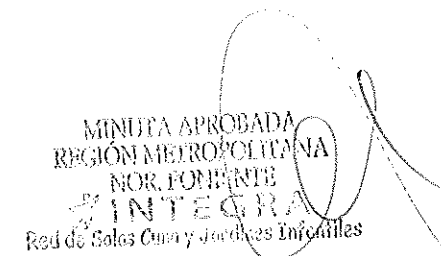 MINUTA APROBADA
REGIÓN METROPOLITANA
NOR. PONIENTE
INTEGRA
Red de Salas Cuna y Jardines Infantiles